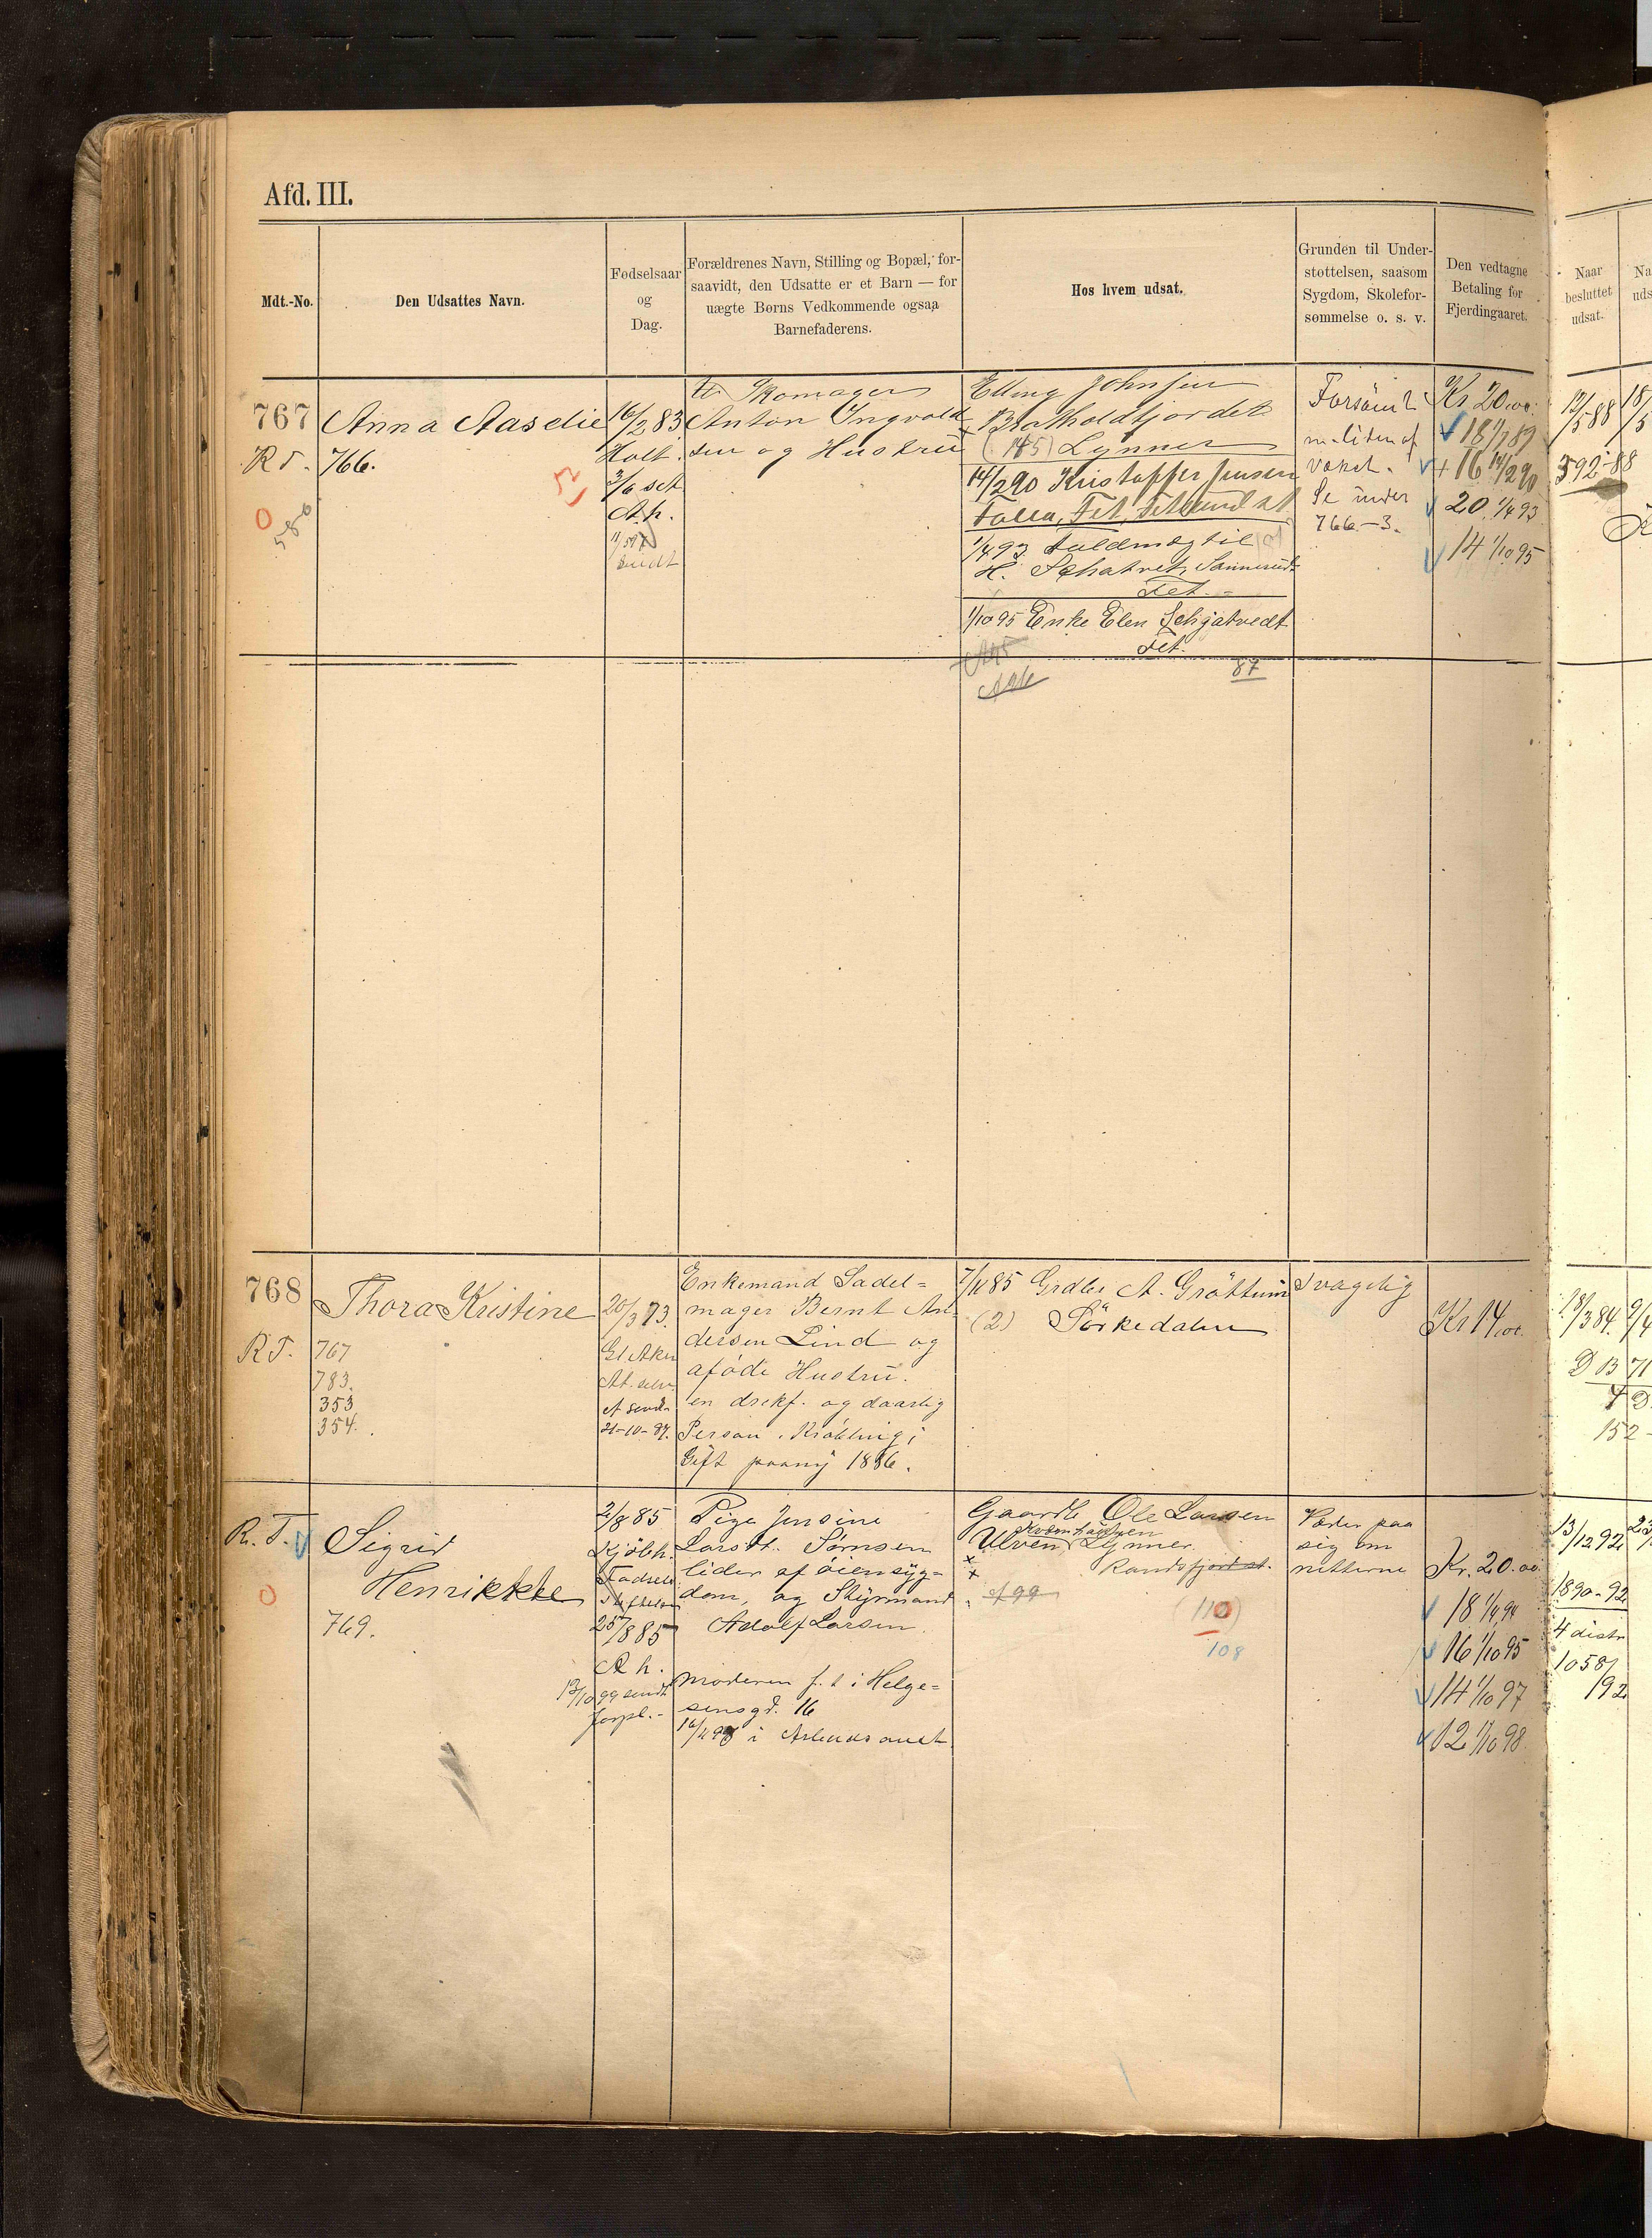 Afd. III.
Mdt.-No.
Den Udsattes Navn.
Fødselsaar
og
Dag.
Forældrenes Navn, Stilling og Bopæl, for-
saavidt, den Udsatte er et Barn — for
uægte Børns Vedkommende ogsaa
Barnefaderens.
Hos hvem udsat.
Grunden til Under-
støttelsen, saasom
Sygdom, Skolefor-
sømmelse o. s. v.
Den vedtagne
Betaling for
Fjerdingaaret.
Naar
besluttet
udsat.
Na
uds
767
R T.
0
Anna Aaselie
766.
16/2 83
Holt.
Skomager
Anton Ingvold
sen og Hustru
Elling Johnsen
Bratvoldfjordet
(185) Lynner
14/2 90 Kristoffer Jensen
Falla, Fet, Fetsund st
1/4 93 Fuldmægtil
H. Schatvet, Sannerud
Fet.
1/10 95 Enke Elen Schjatvedt
Fet.
87
Forsömt
m. liden af
vækst.
Se under
766-3.
Kr 20,00.
18 1/7 89
+ 16 14/2 90
20. 1/4 93
14 1/10 95
12/5 88
392-88
768
R T.
Thora Kristine
767
783.
353
354.
20/3 73.
Gl Aker
At. selv.
21-10-87.
Enkemand Sadel=
mager Bernt An-
dersen Lind og
aføde Hustru.
en drekf. og daarlig
Person.
Gift paany 1886.
7/4 85 Grdbr A. Gröttum
(2) Sörkedalen
Svagelig
Kr 14,00.
18/3 84.
D 13 71
152
R. T.
0
Sigrid
Henrikke
769.
2/8 85
Kjöbh.
Fødsels
25/8 85
A h.
13/10 99 sendt
forpl.-
Pige Jensine
Larsdt. Sörnsen
lider af öiensyg-
dom, og Styrmand
Adolf Larsen.
Moderen f. t i Helge=
sensgd. 16
i Arbeidsanst
Gaardb Ole Larsen
Ulven Lynner.
Randsfjord st.
(110)
108
Væder paa
sig om
netterne
Kr. 20.00
18 1/4 94
16 1/10 95
14 1/10 97
12 1/10 98
13/12 92
1890-92
4 distr
1058
192